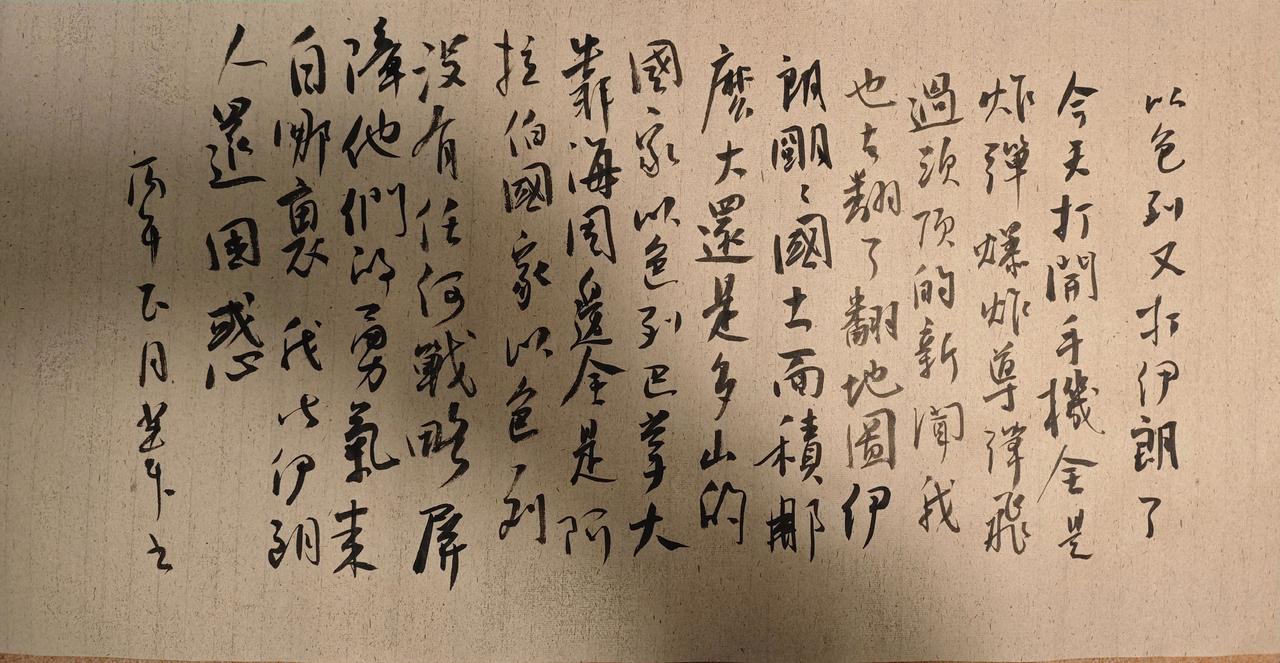 以色列又打伊朗了
今天打開手機全是
炸彈爆炸導彈飛
過頭頂的新聞我
也去翻了翻地圖伊
朗剛〻國土面積那
麼大還是多山的
國家以色列巴掌大
靠海周邊全是阿
拉伯國家以色列
沒有任何戰略屏
障他們的勇氣來
自哪裏我比伊朗
人還困惑
丙午正月